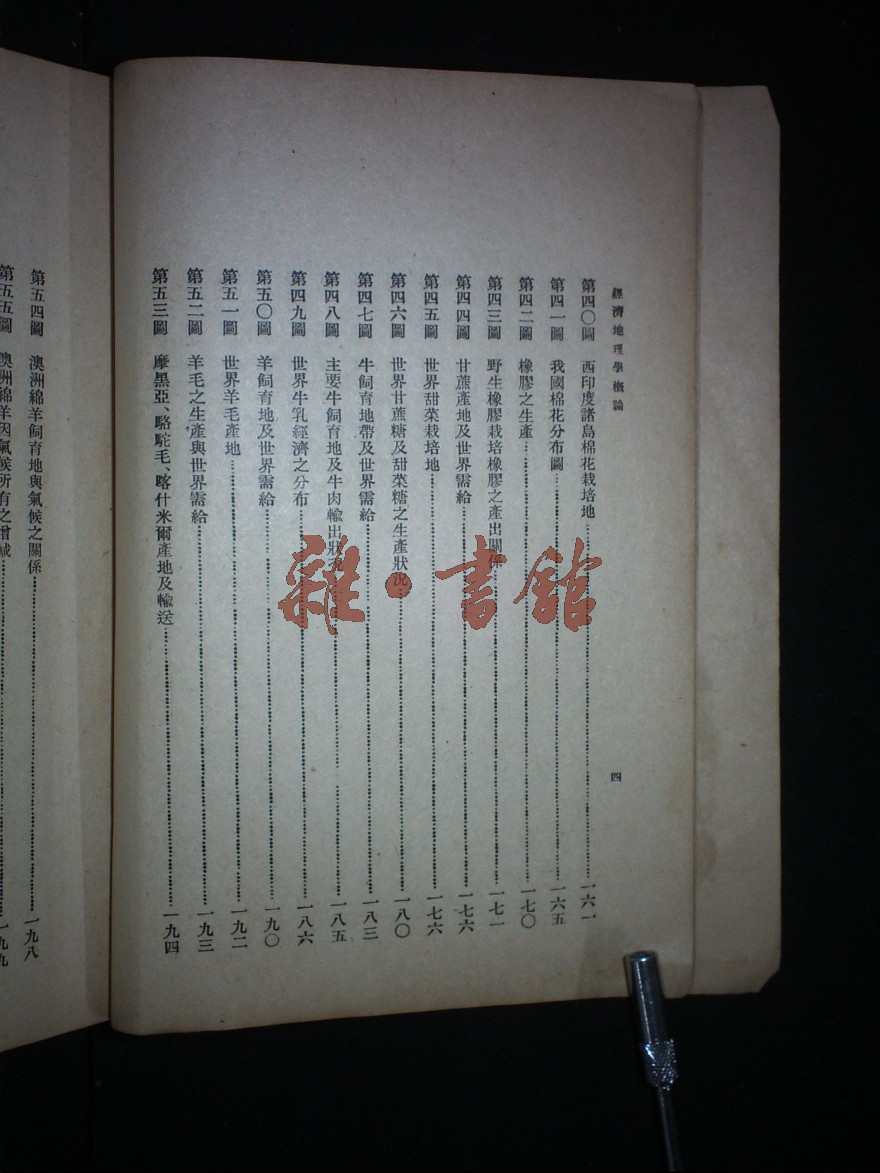 經濟地理學概論
四
第四〇圖 西印度諸島棉花栽培地……一六一
第四一圖 我國棉花分布圖……一六五
第四二圖 橡膠之生產……一七〇
第四三圖 野生橡膠栽培橡膠之產出關係……一七一
第四四圖 甘蔗產地及世界需給……一七六
第四五圖 世界甜菜栽培地……一七六
第四六圖 世界甘蔗糖及甜菜糖之生產狀況……一八〇
第四七圖 牛飼育地帶及世界需給……一八三
第四八圖 主要牛飼育地及牛肉輸出狀況……一八五
第四九圖 世界牛乳經濟之分布……一八六
第五〇圖 羊飼育地及世界需給……一九〇
第五一圖 世界羊毛產地……一九二
第五二圖 羊毛之生產與世界需給……一九三
第五三圖 摩黑亞、駱駝毛、喀什米爾產地及輸送……一九四
第五四圖 澳洲綿羊飼育地與氣候之關係……一九八
第五五圖 澳洲綿羊因氣候所有之增減……一九九
雜·書館